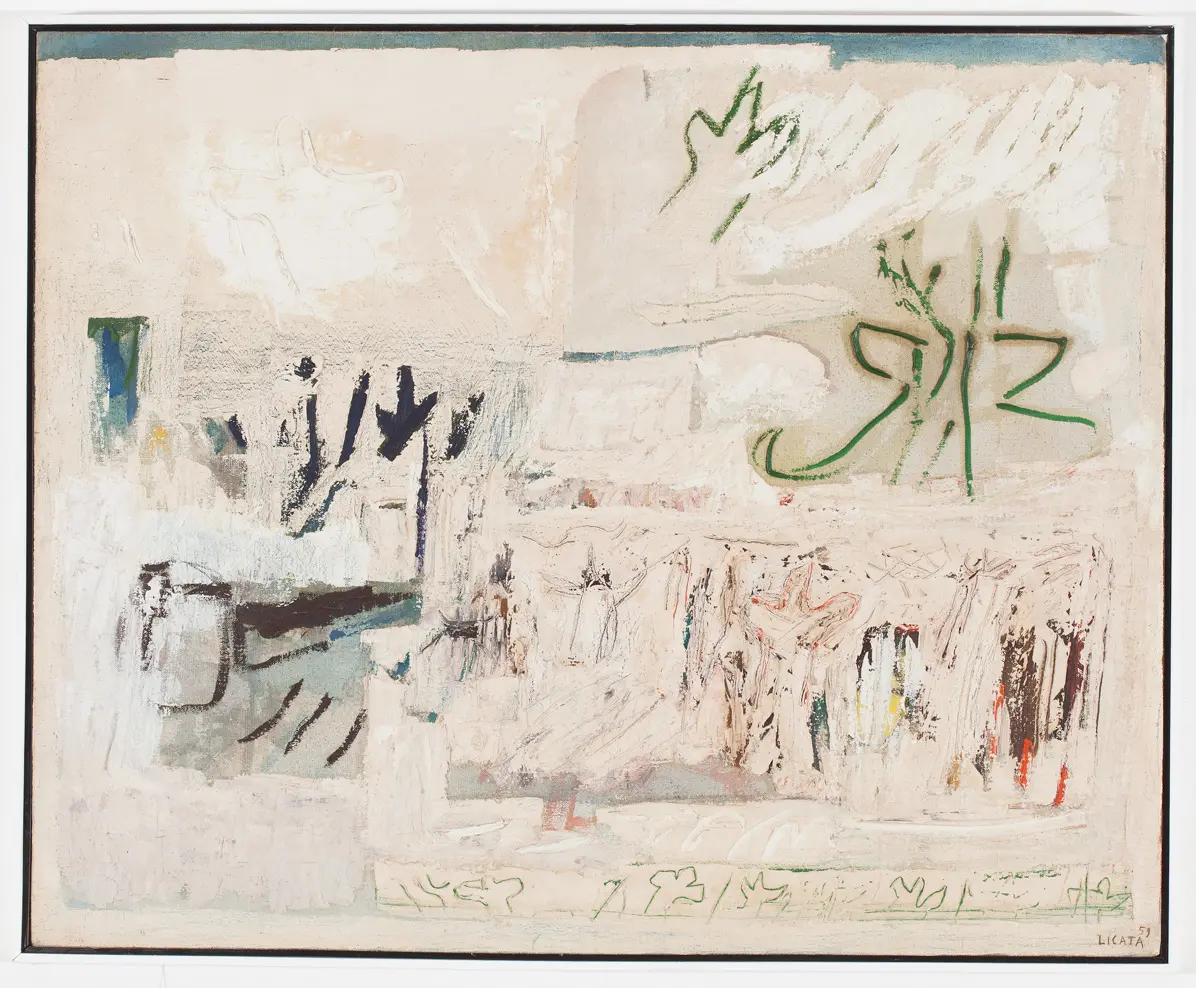 59
LICATA